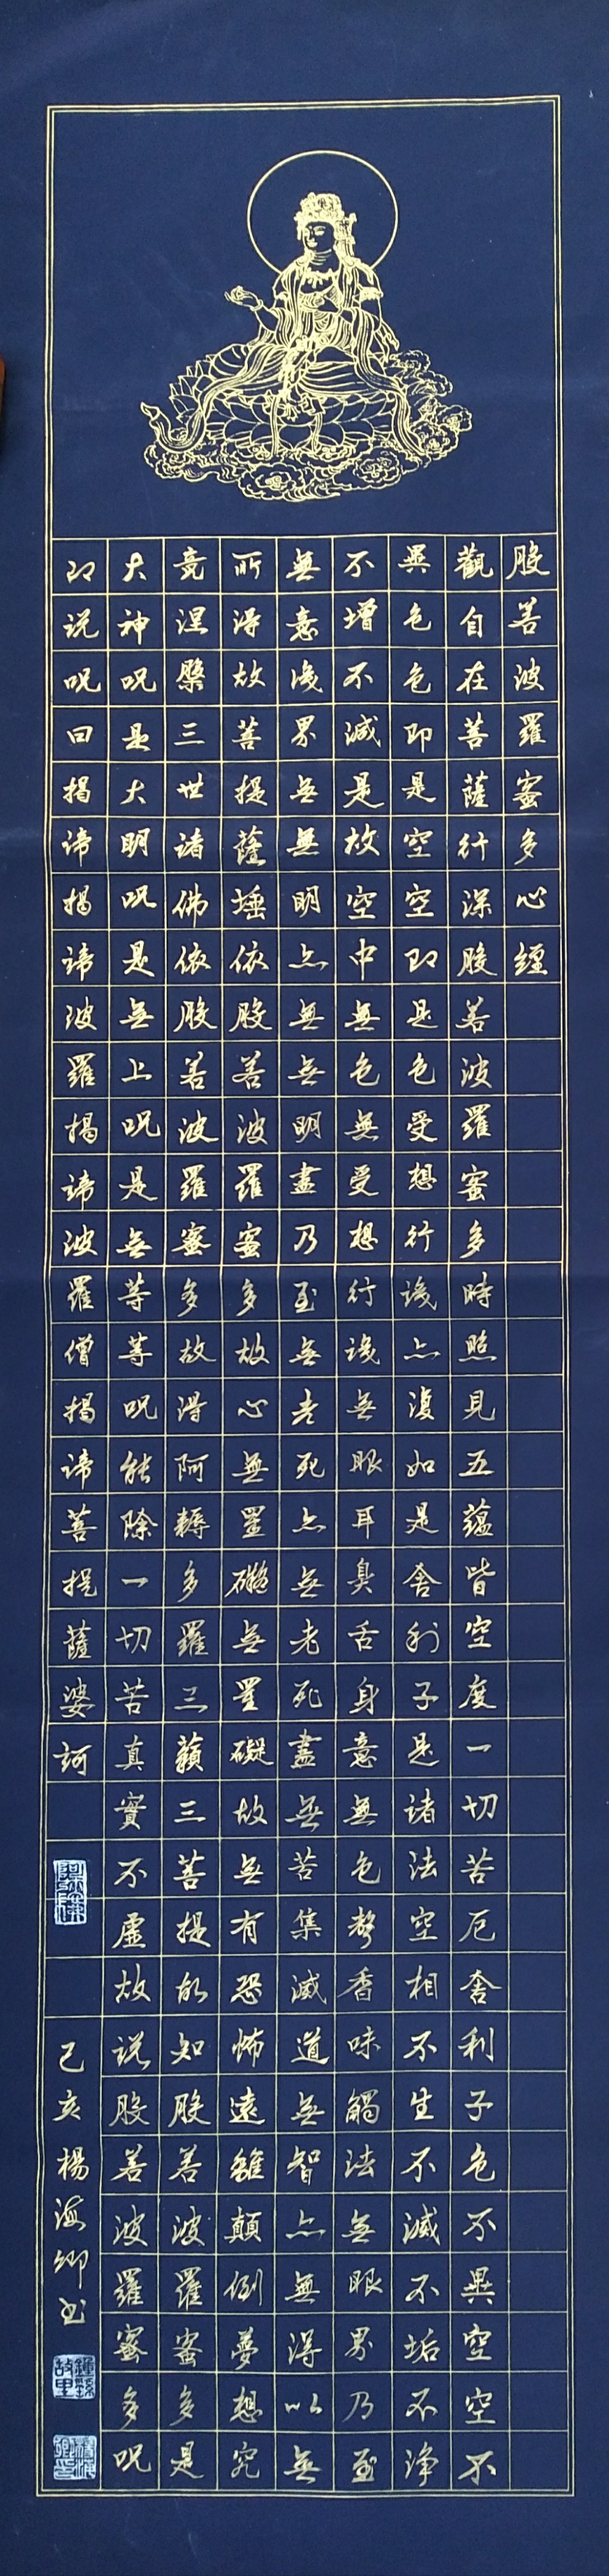 般若波羅蜜多心經
觀自在菩薩行深般若波羅蜜多時照見五蘊皆空度一切苦厄舍利子色不異空空不
異色色即是空空即是色受想行識亦復如是舍利子是諸法空相不生不滅不垢不淨
不增不減是故空中無色無受想行識無眼耳鼻舌身意無色聲香味觸法無眼界乃至
無意識界無無明亦無無明盡乃至無老死亦無老死盡無苦集滅道無智亦無得以無
所得故菩提薩埵依般若波羅蜜多故心無罣礙無罣礙故無有恐怖遠離顛倒夢想究
竟涅槃三世諸佛依般若波羅蜜多故得阿耨多羅三藐三菩提故知般若波羅蜜多是
大神呪是大明呪是無上呪是無等等呪能除一切苦真實不虛故說般若波羅蜜多呪
即說呪曰揭諦揭諦波羅揭諦波羅僧揭諦菩提薩婆訶
己亥楊海卿書
鍾繇故里